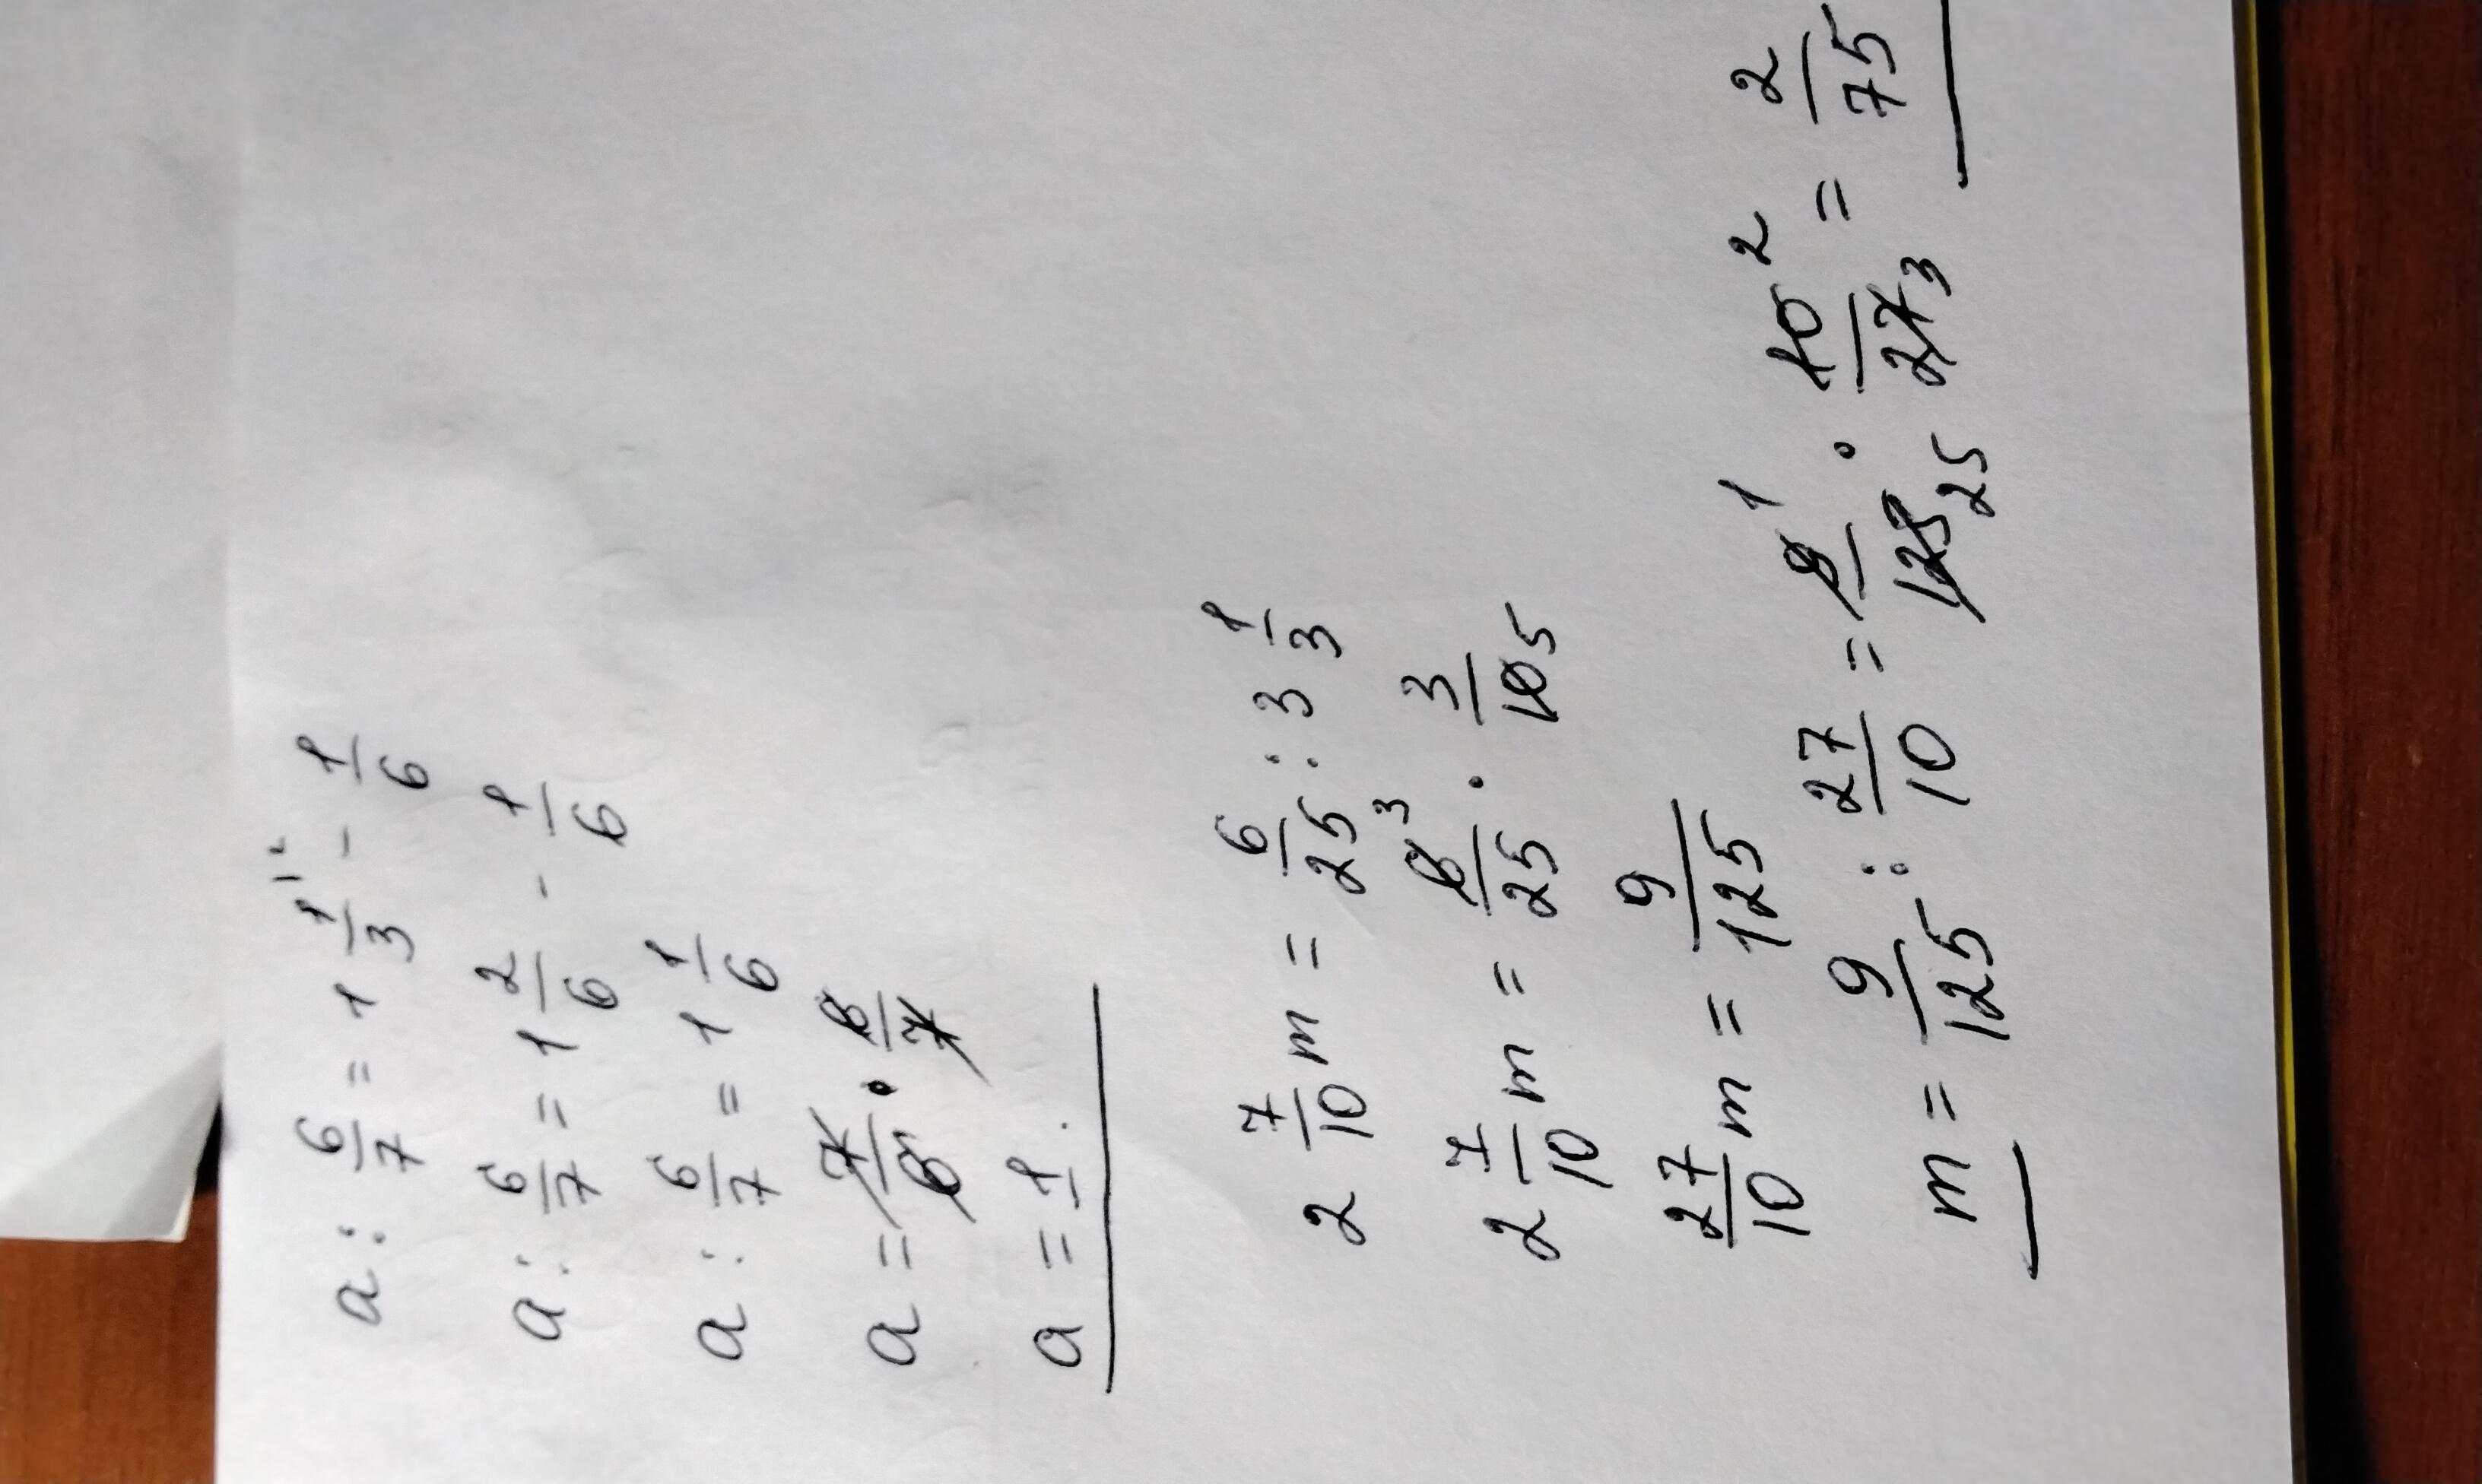 a : 6/7 = 1 1/3 |2 - 1/6
a : 6/7 = 1 2/6 - 1/6
a : 6/7 = 1 1/6
a = 7/6 · 6/7
a = 1.
2 7/10 m = 6/25 : 3 1/3
2 7/10 m = 6 3/25 · 3/10 5
27/10 m = 9/125
m = 9/125 : 27/10 = 9 1/125 25 · 10 2/27 3 = 2/75